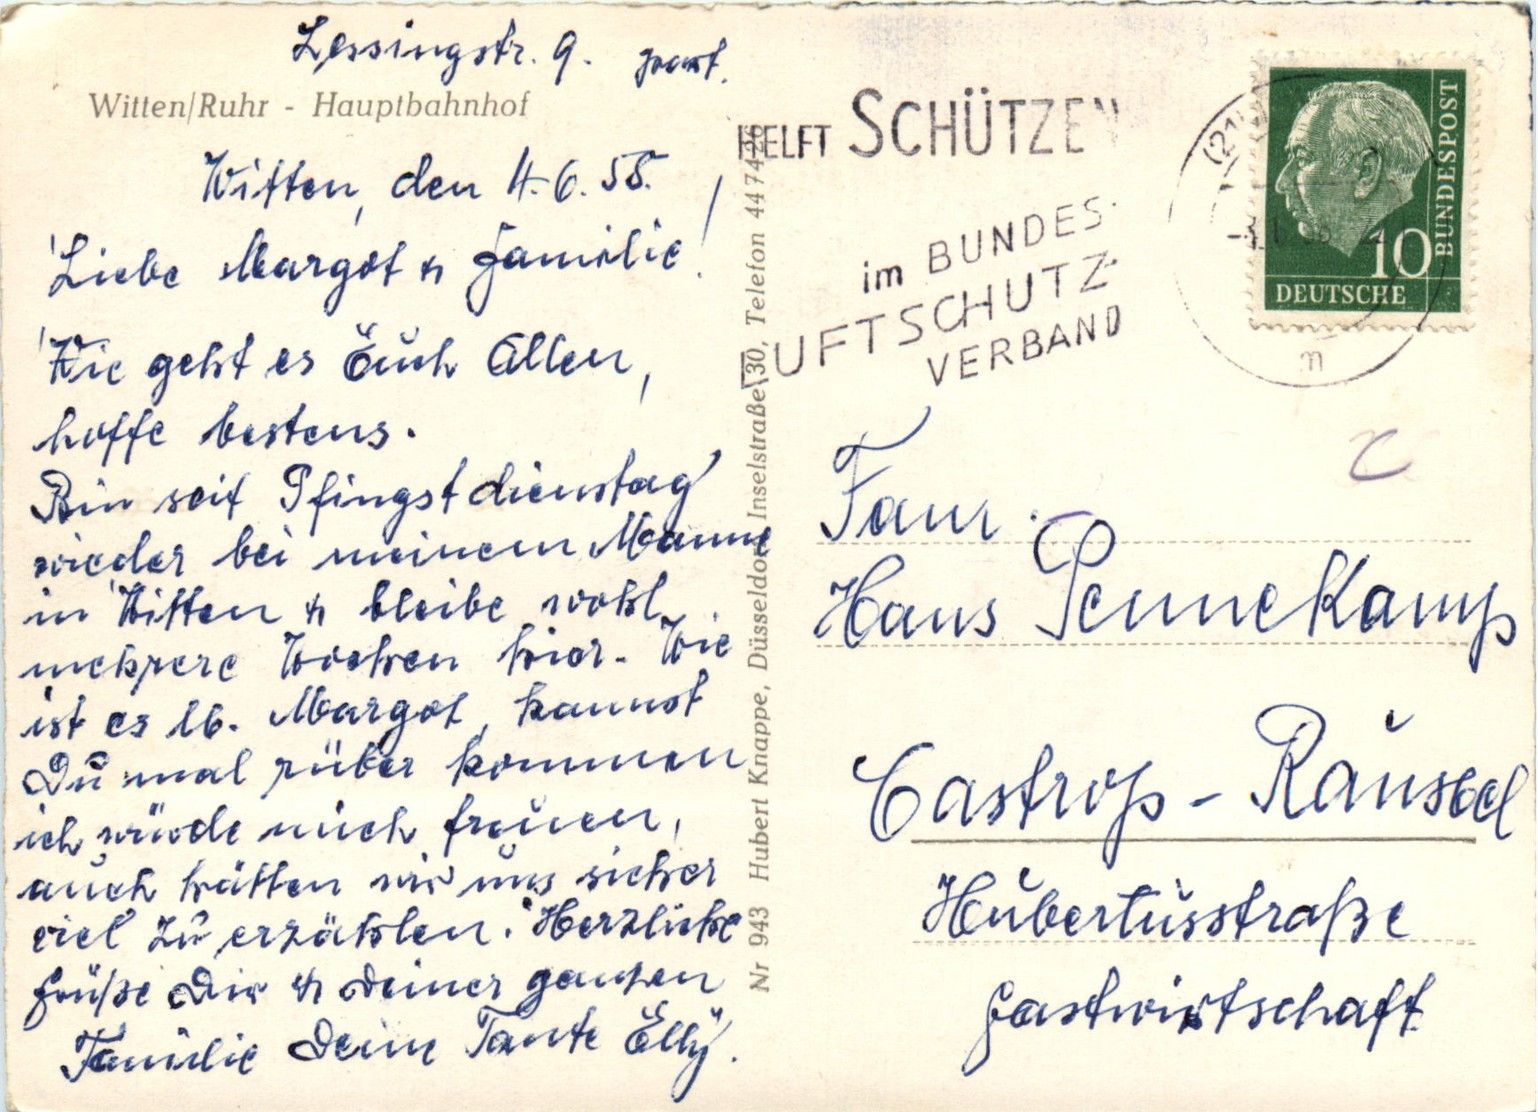 Lessingstr. 9. part.
Witten/Ruhr - Hauptbahnhof
Witten, den 4.6.58.
Liebe Margot u Familie!
Wie geht es Euch Allen,
hoffe bestens.
Bin seit Pfingstdienstag
wieder bei meinem Manne
in Witten u bleibe wohl
mehrere Wochen hier. Wie
ist es lb. Margot, kannst
Du mal rüber kommen
ich würde mich freuen,
auch hätten wir uns sicher
viel zu erzählen. Herzliche
Grüße Dir u Deiner ganzen
Familie Deine Tante Elly.
Nr 943 Hubert Knappe, Düsseldorf, Inselstraße 30, Telefon 44 74 26
HELFT SCHÜTZEN
im BUNDES-
LUFTSCHUTZ-
VERBAND
(21
m
DEUTSCHE
BUNDESPOST
10
Fam.
Hans Pennekamp
Castrop-Rauxel
Hubertusstraße
Gastwirtschaft